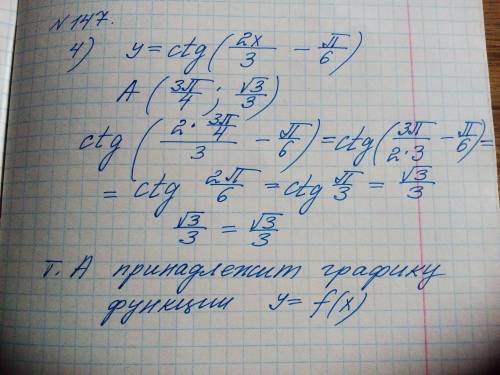 №147.
4) y = ctg(2x/3 − π/6)
A (3π/4; √3/3)
ctg (2·3π/4/3 − π/6) = ctg(3π/2·3 − π/6) =
= ctg 2π/6 = ctg π/3 = √3/3
√3/3 = √3/3
т. А принадлежит графику
функции y = f(x)